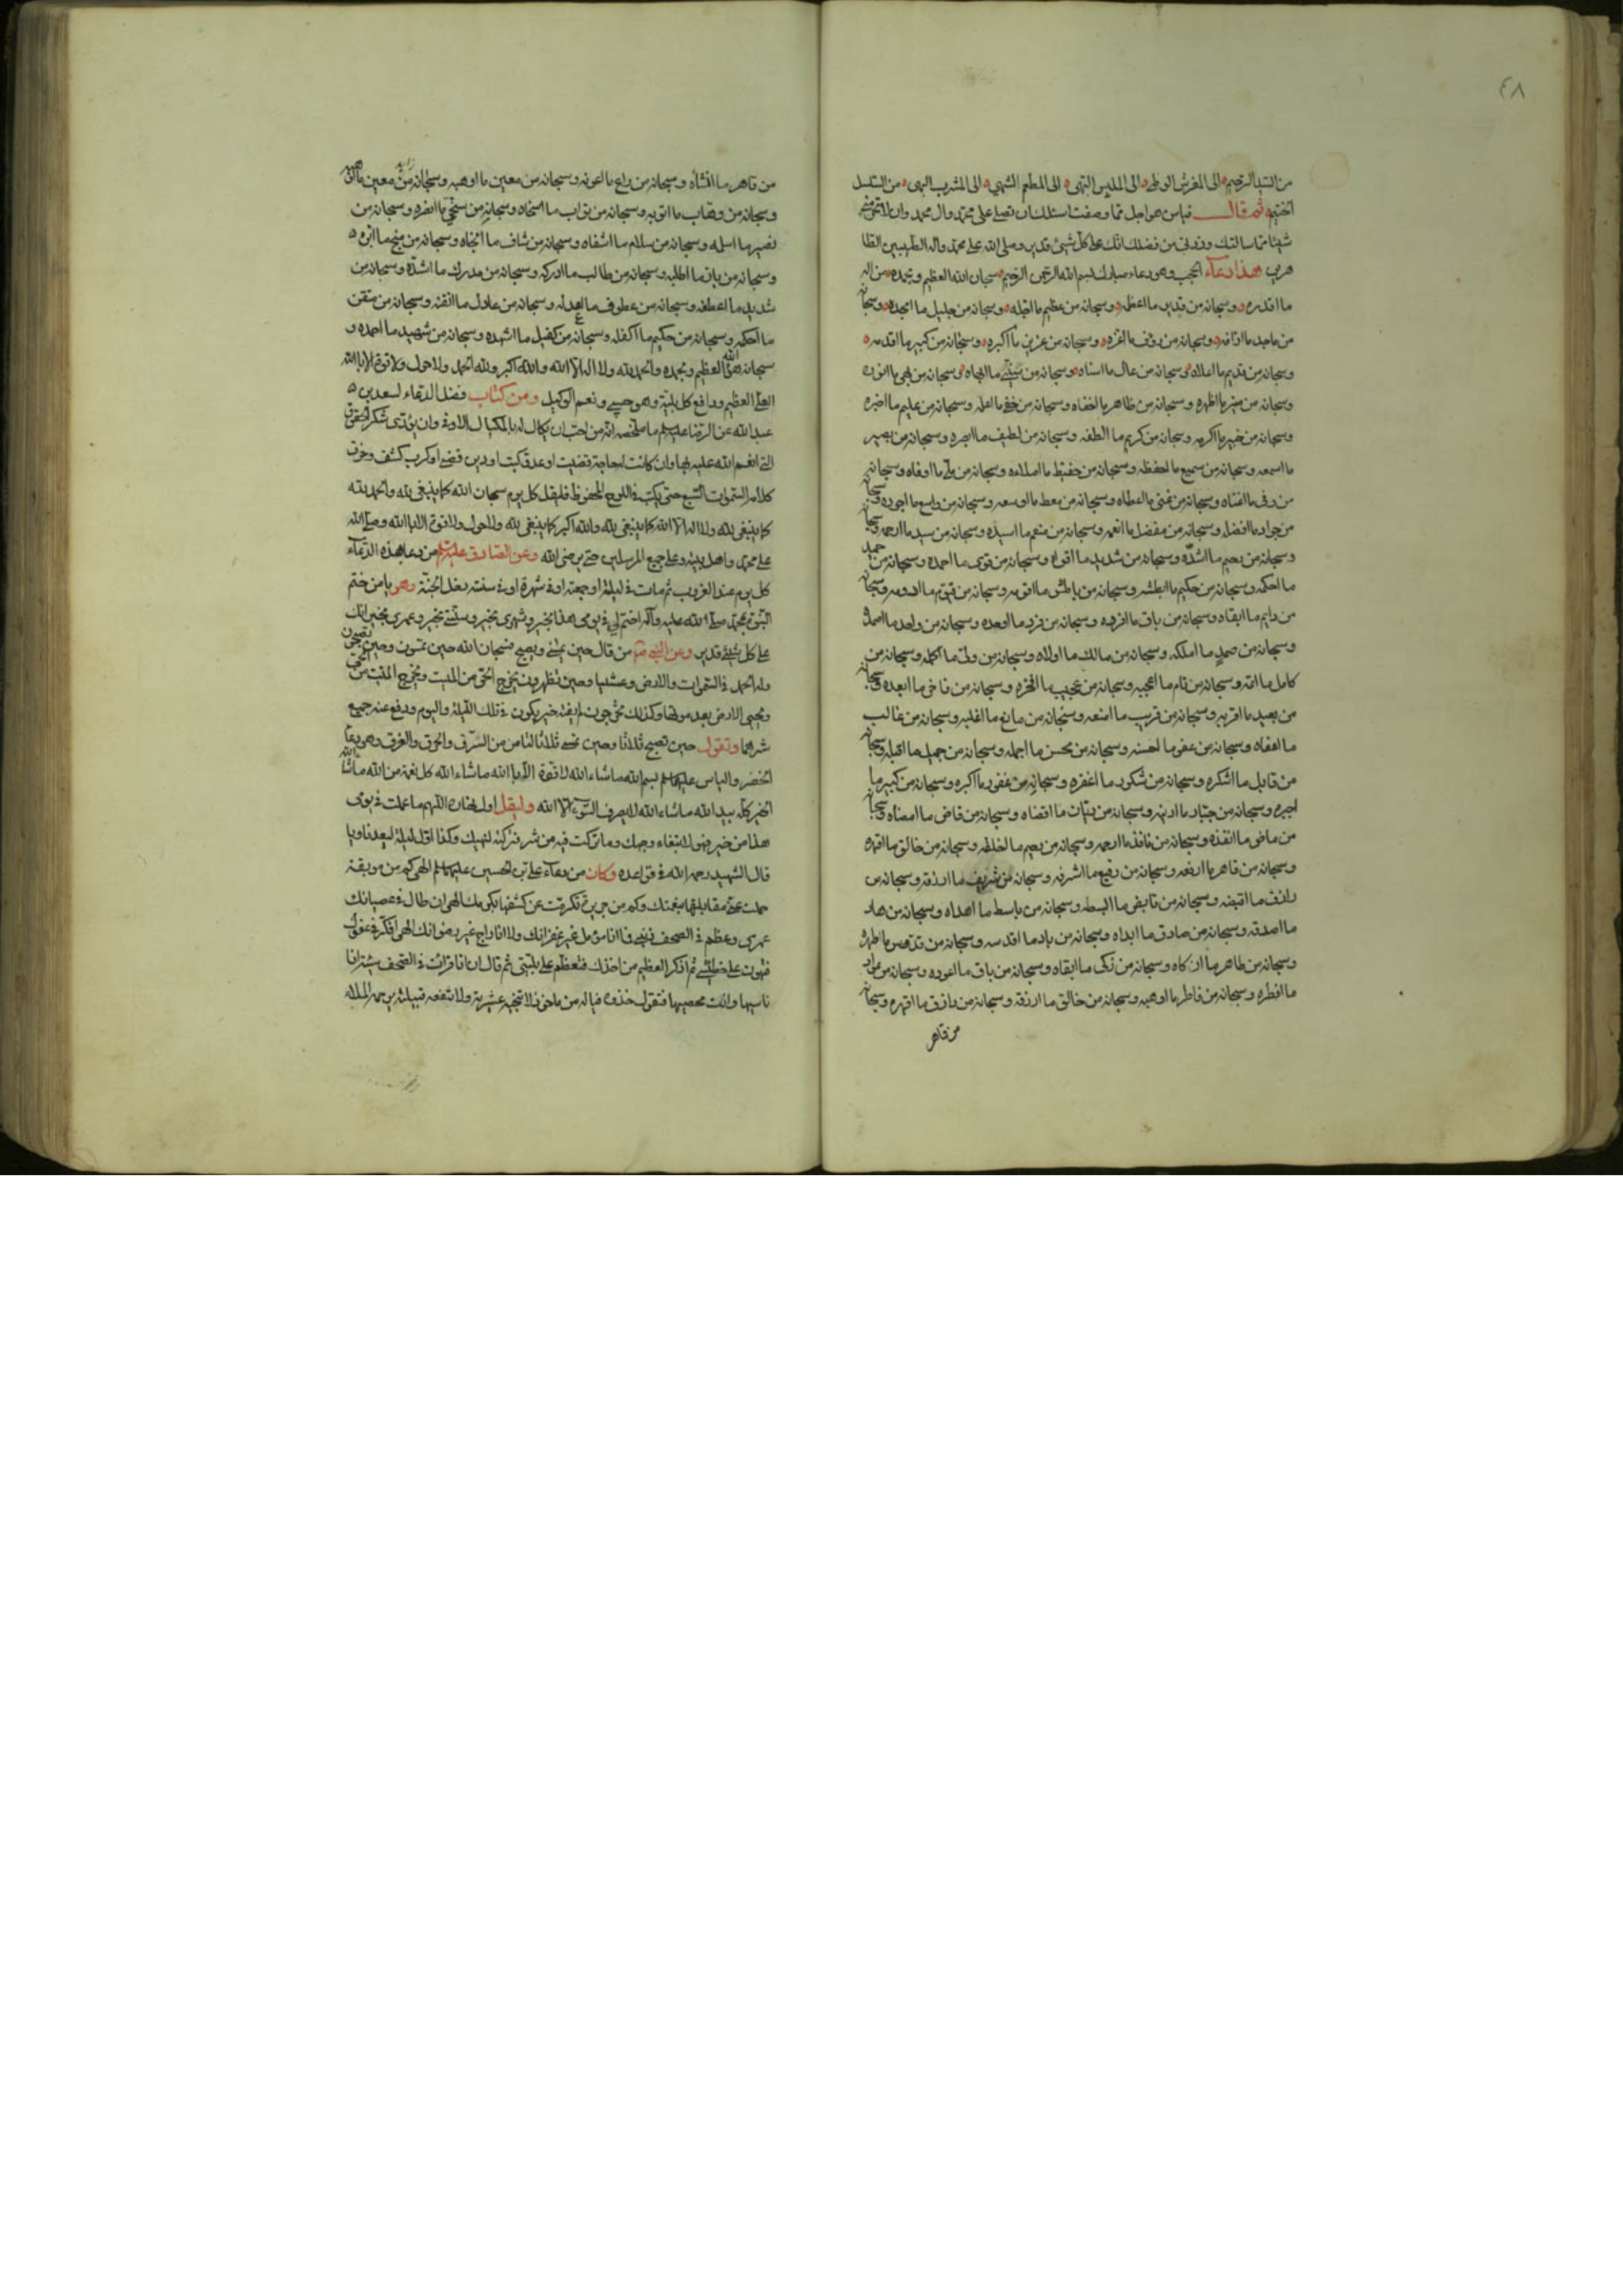 ٤٨
من السيد الرحيم الى المفرش الوطى الى الملبس البهى الى المطعم الشهي الى المشرب الهنى من السلسل
ثم قال فيا من هو اجل مما وصفت اسئلك ان تصلي على محمد وال محمد وان لا تحرمنى
شيئا مما سالتك وزدنى من فضلك انك على كل شيئ قدير وصلى الله على محمد واله الطيبين الطا
هرين هذا دعاء الحجب وهو دعاء مبارك بسم الله الرحمن الرحيم سبحان الله العظيم وبحمده من اله
ما اقدره وسبحانه من قدير ما اعظمه وسبحانه من عظيم ما اجله وسبحانه من جليل ما امجده وسبحانه
من ماجد ما ارافه وسبحانه من رؤف ما اعزه وسبحانه من عزيز ما اكبره وسبحانه من كبير ما اقدمه
وسبحانه من قديم ما اعلاه وسبحانه من عال ما اسناه وسبحانه من سنى ما ابهاه وسبحانه من بهى ما انوره
وسبحانه من منير ما اظهره وسبحانه من ظاهر ما اخفاه وسبحانه من خفي ما اعلمه وسبحانه من عليم ما اخبره
وسبحانه من خبير ما اكرمه وسبحانه من كريم ما الطفه وسبحانه من لطيف ما ابصره وسبحانه من بصير
ما اسمعه وسبحانه من سميع ما احفظه وسبحانه من حفيظ ما املاه وسبحانه من ملى ما اوفاه وسبحانه
من وفى ما اغناه وسبحانه من غنى ما اعطاه وسبحانه من معط ما اوسعه وسبحانه من واسع ما اجوده وسبحانه
من جواد ما افضله وسبحانه من مفضل ما انعمه وسبحانه من منعم ما اسيده وسبحانه من سيد ما ارحمه وسبحانه
وسبحانه من رحيم ما اشده وسبحانه من شديد ما اقواه وسبحانه من قوى ما احمده وسبحانه من حميد
ما احكمه وسبحانه من حكيم ما ابطشه وسبحانه من باطش ما اقومه وسبحانه من قيوم ما ادومه وسبحانه
من دايم ما ابقاه وسبحانه من باق ما افرده وسبحانه من فرد ما اوحده وسبحانه من واحد ما اصمده
وسبحانه من صمد ما املكه وسبحانه من مالك ما اولاه وسبحانه من ولى ما اكمله وسبحانه من
كامل ما اتمه وسبحانه من تام ما اعجبه وسبحانه من عجيب ما افخره وسبحانه من فاخر ما ابعده وسبحانه
من بعيد ما اقربه وسبحانه من قريب ما امنعه وسبحانه من مانع ما اغلبه وسبحانه من غالب
ما اعفاه وسبحانه من عفو ما احسنه وسبحانه من محسن ما اجمله وسبحانه من جميل ما اقبله وسبحانه
من قابل ما اشكره وسبحانه من شكور ما اغفره وسبحانه من غفور ما اكبره وسبحانه من كبير ما
اجبره وسبحانه من جبار ما ادينه وسبحانه من ديان ما اقضاه وسبحانه من قاض ما امضاه وسبحانه
من ماض ما انفذه وسبحانه من نافذ ما ارحمه وسبحانه من رحيم ما اخلقه وسبحانه من خالق ما اقهره
وسبحانه من قاهر ما ارفعه وسبحانه من رفيع ما اشرفه وسبحانه من شريف ما ارزقه وسبحانه من
رازق ما اقبضه وسبحانه من قابض ما ابسطه وسبحانه من باسط ما اهداه وسبحانه من هاد
ما اصدقه وسبحانه من صادق ما ابداه وسبحانه من باد ما اقدسه وسبحانه من قدوس ما اطهره
وسبحانه من طاهر ما ازكاه وسبحانه من زكى ما ابقاه وسبحانه من باق ما اعوده وسبحانه من عواد
ما افطره وسبحانه من فاطر ما اوهبه وسبحانه من خالق ما ارزقه وسبحانه من رازق ما اقهره وسبحانه
من قاهر
من قاهر ما انشاه وسبحانه من راع ما اعونه وسبحانه من معين ما اوهبه وسبحانه من معين
وسبحانه من وهاب ما اتوبه وسبحانه من تواب ما اسخاه وسبحانه من سخي ما انصره وسبحانه من
نصير ما اسلمه وسبحانه من سلام ما اشفاه وسبحانه من شاف ما انجاه وسبحانه من منج ما ابره
وسبحانه من بار ما اطلبه وسبحانه من طالب ما ادركه وسبحانه من مدرك ما اشده وسبحانه من
شديد ما اعطفه وسبحانه من عطوف ما اعدله وسبحانه من عادل ما اتقنه وسبحانه من متقن
ما احكمه وسبحانه من حكيم ما اكفله وسبحانه من كفيل ما اشهده وسبحانه من شهيد ما احمده و
سبحانه هو الله العظيم وبحمده والحمد لله ولا اله الا الله والله اكبر ولله الحمد ولا حول ولا قوة الا بالله
العلى العظيم ودافع كل بلية وهو حسبي ونعم الوكيل ومن كتاب فضل الدعاء لسعد بن
عبد الله عن الرضا عليه السلم ما ملخصه انه من احب ان يكال له بالمكيال الاوفى وان يؤدى شكر الحقوق
التى انعم الله عليه بها وان كانت له حاجة قضيت او عدو كبت او دين قضى او كرب كشف وخرق
كلامه السموات السبع حتى يكتب فى اللوح المحفوظ فليقل كل يوم سبحان الله كما ينبغى لله والحمد لله
كما ينبغى لله ولا اله الا الله كما ينبغى لله والله اكبر كما ينبغى لله ولا حول ولا قوة الا بالله وصلى الله
على محمد واهل بيته وعلى جميع المرسلين حتى يرضى الله وعن الصادق عليه السلم من دعا بهذه الدعاء
كل يوم عند الغروب ثم مات فى ليلته او جمعته او فى شهره او فى سنته دخل الجنة وهو يا من ختم
النبوة بمحمد صلى الله عليه وآله اختم لى فى يومى هذا بخير وشهرى بخير وسنتى بخير وعمرى بخير انك
على كل شيئ قدير وعن النبى ص من قال حين يمسى ويصبح فسبحان الله حين تمسون وحين تصبحون
وله الحمد فى السموات والارض وعشيا وحين تظهرون يخرج الحى من الميت ويخرج الميت من الحى
ويحيى الارض بعد موتها وكذلك تخرجون لم يفته خير يكون فى تلك الليلة واليوم ودفع عنه جميع
شرهما وتقول حين تصبح ثلاثا وحين تمسى ثلاثا للتامن من السرق والحرق والغرق وهو دعاء
الخضر والياس عليهما السلم بسم الله ما شاء الله لا قوة الا بالله ما شاء الله كل نعمة من الله ما شاء الله
الخير كله بيد الله ما شاء الله لا يصرف السوء الا الله وليقل اول نهاره اللهم ما عملت فى يومى
هذا من خير فهو لابتغاء وجهك وما تركت فيه من شر فتركته لنهيك وكذا اول ليلة
قال الشهيد رحمه الله فى قواعده وكان من دعاء على بن الحسين عليهما السلم الهى كم من موبقة
حلمت عن مقابلتها بنعمتك وكم من جريرة تكرمت عن كشفها بكرمك الهى ان طال فى عصيانك
عمرى وعظم فى الصحف ذنبى فما انا مؤمل غير غفرانك ولا انا براج غير رضوانك الهى افكر فى عفوك
فتهون على خطيئتى ثم اذكر العظيم من اخذك فتعظم على بليتى ثم قال اه ان انا قرات فى الصحف سيئة انا
ناسيها وانت محصيها فتقول خذوه فياله من ماخوذ لا تنجيه عشيرته ولا تنفعه قبيلته يرحمه الملاء